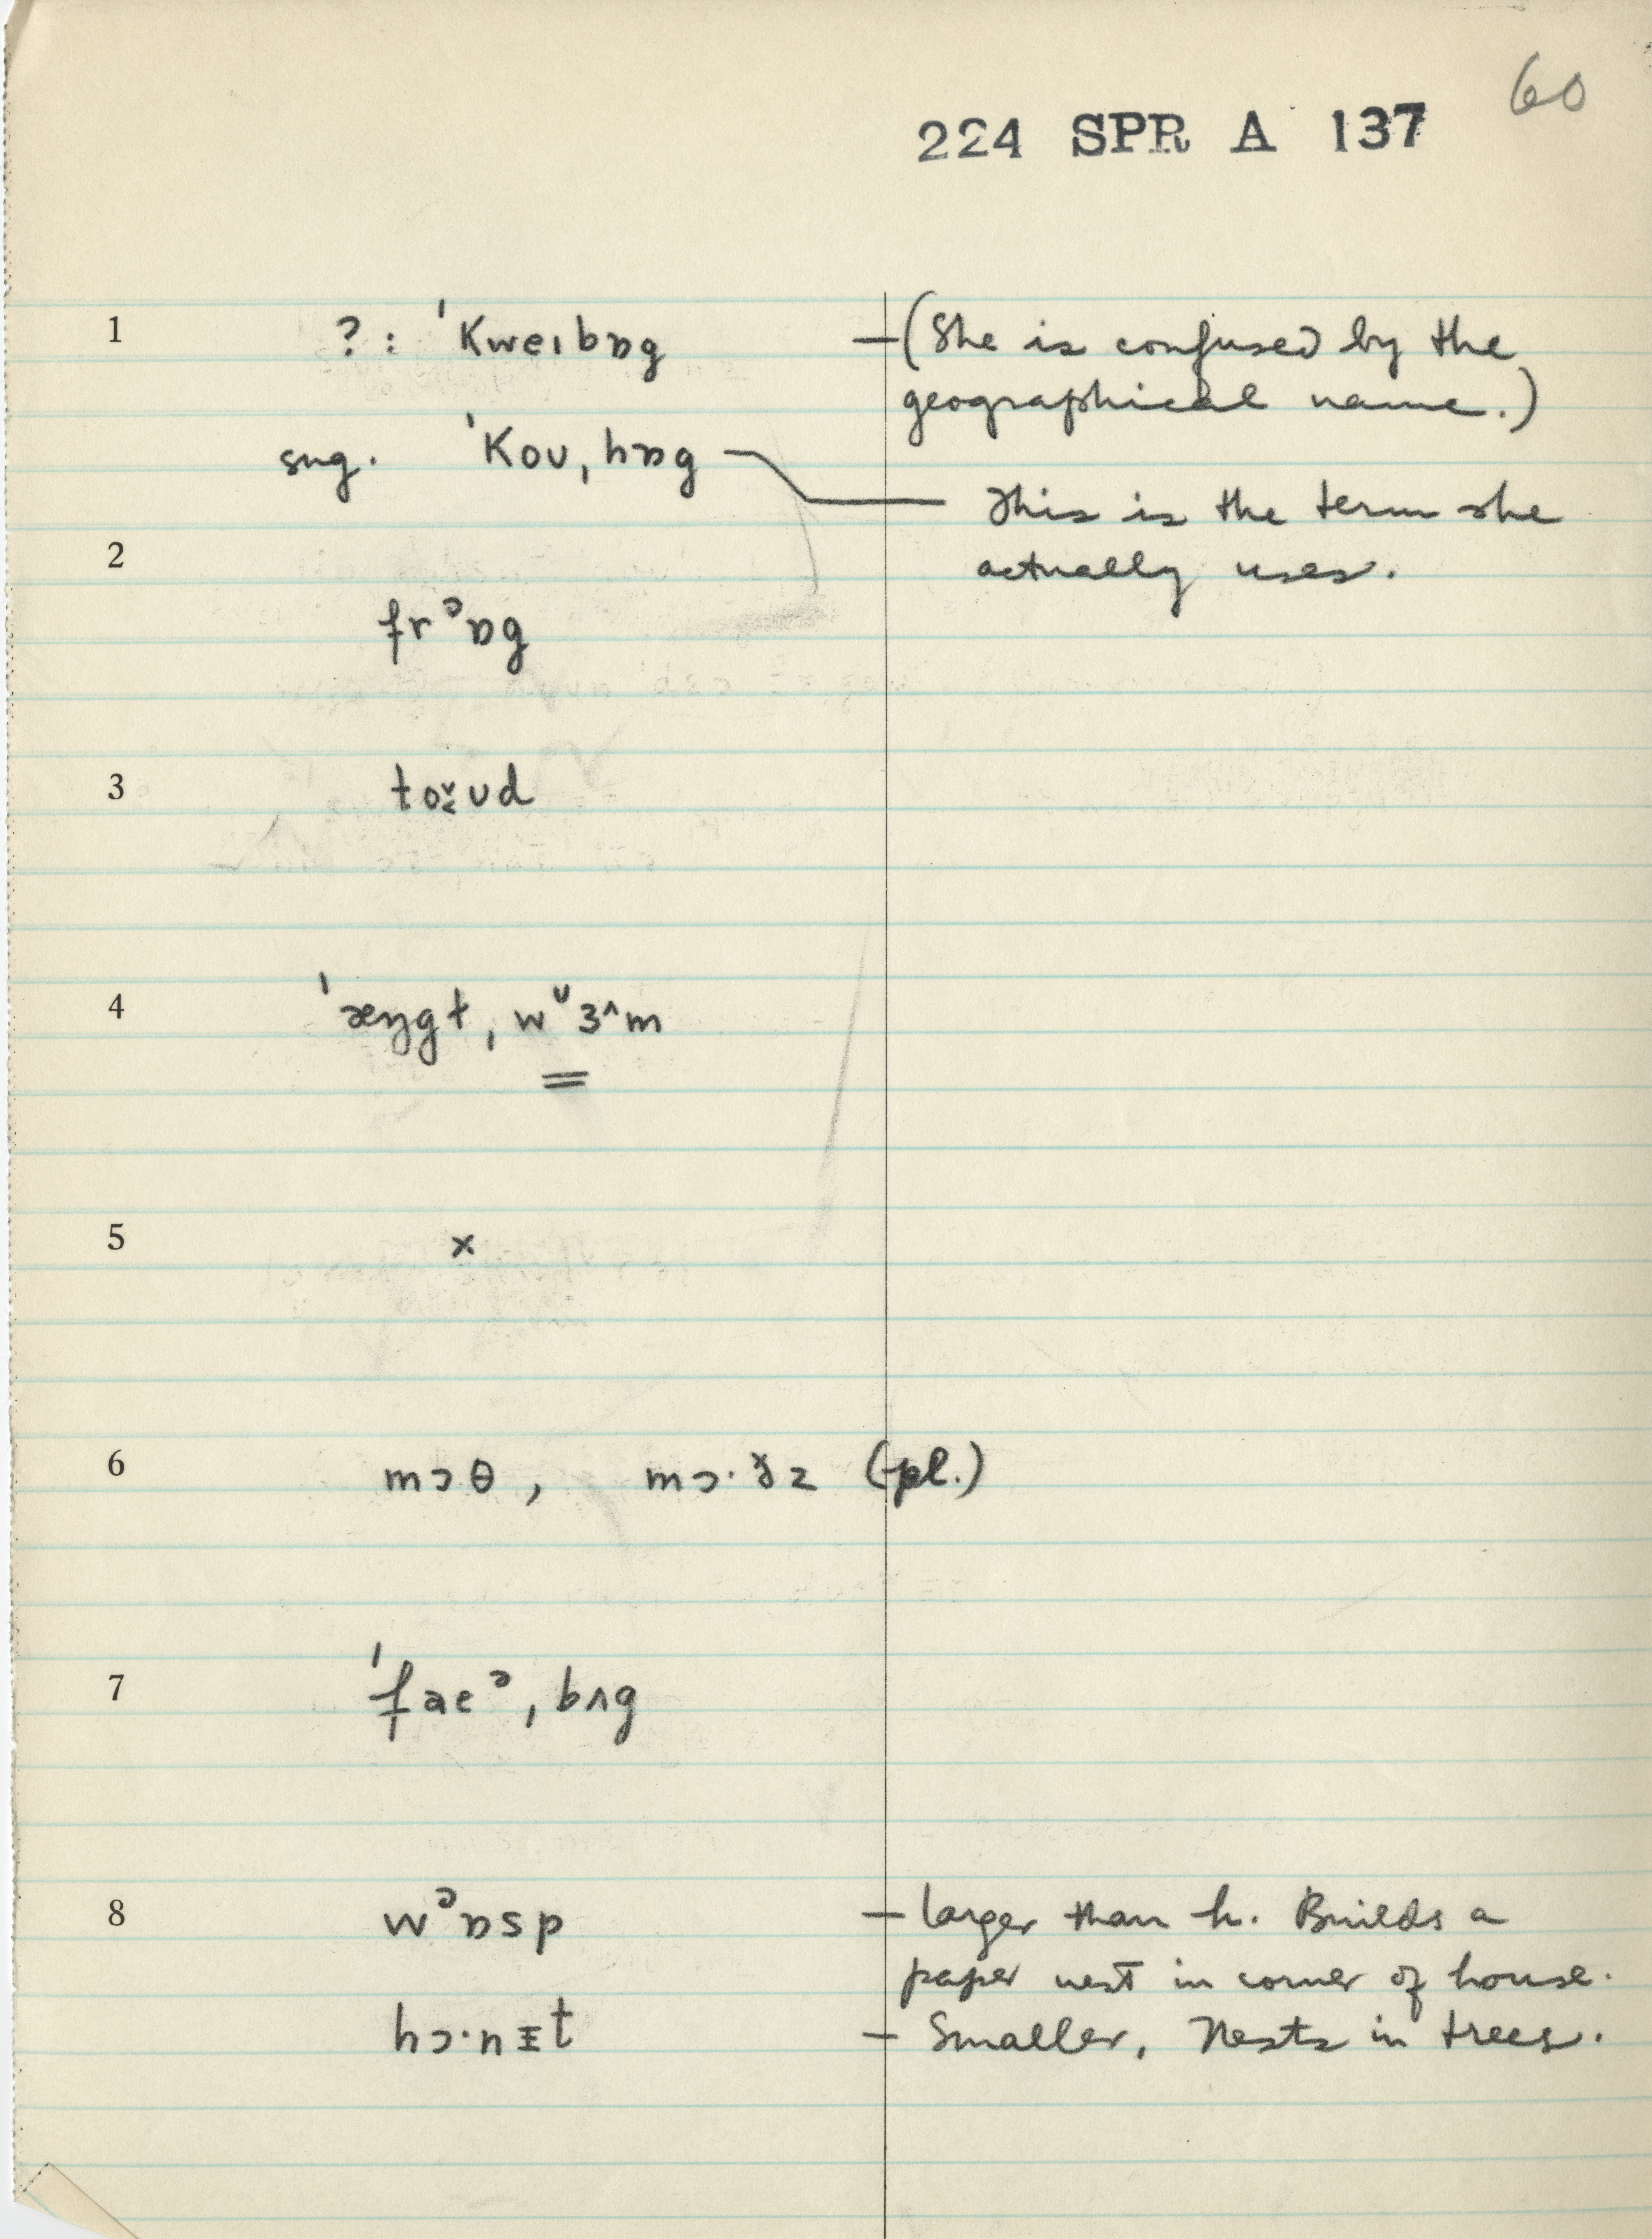 60
224 SPR A 137
1 ?: ˈKweɪbɒg —(She is confused by the
geographical name.)
sug. ˈKoʊˌhɒg — This is the term she
actually uses.
2
frᵊɒg
3 to̬˂ʊd
4 ˈæŋgtˌwᶷɜ^m
5 x
6 mɔθ, mɔ·ð̆z (pl.)
7 ˈfaeᵊˌbʌg
8 wᵊɒsp — larger than h. Builds a
paper nest in corner of house.
hɔ·nɪt — Smaller, Nests in trees.